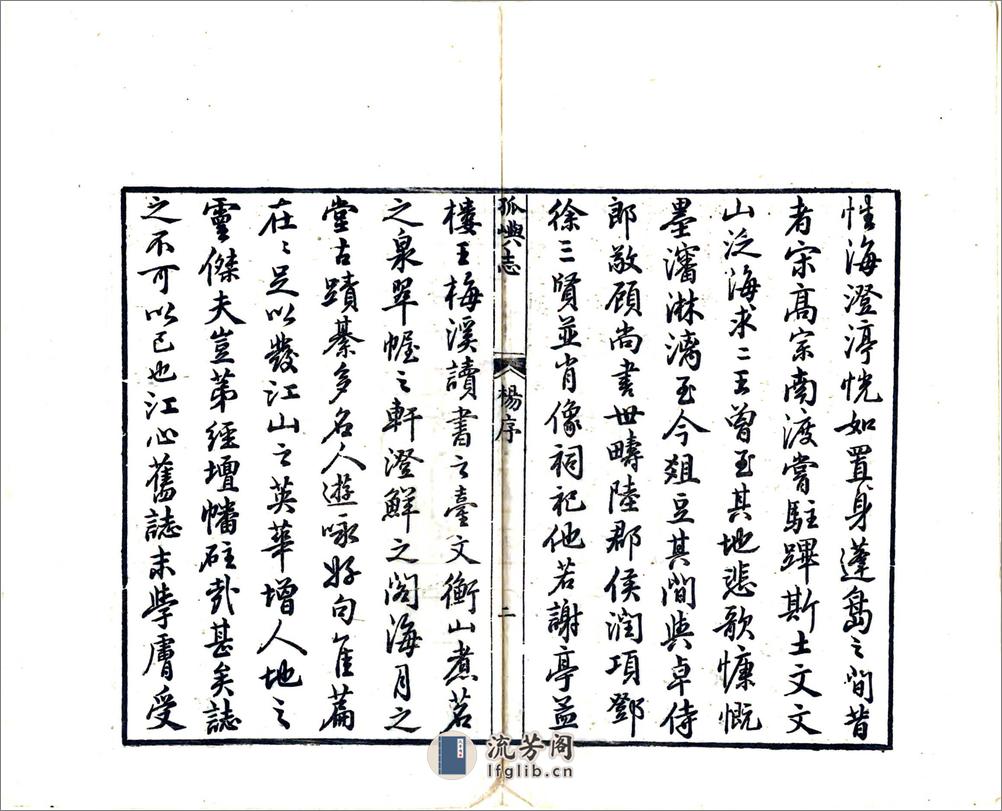 性海澄渟恍如置身蓬島之間昔
者宋髙宗南渡嘗駐蹕斯土文文
山泛海求二王曾至其地悲歌慷慨
墨瀋淋漓至今爼豆其間與卓侍
郎敬顧尚書世疇陸郡侯潤項鄧
徐三賢並肖像祠祀他若謝亭孟
孤嶼志
楊序
二
樓王梅溪讀書之臺文衡山煮茗
之泉翠幄之軒澄鮮之閣海月之
堂古蹟綦多名人遊咏好句隹篇
在在足以發江山之英華增人地之
靈傑夫豈第經壇幡砫哉甚矣誌
之不可以已也江心舊誌末學膚受
流芳阁
lfglib.cn